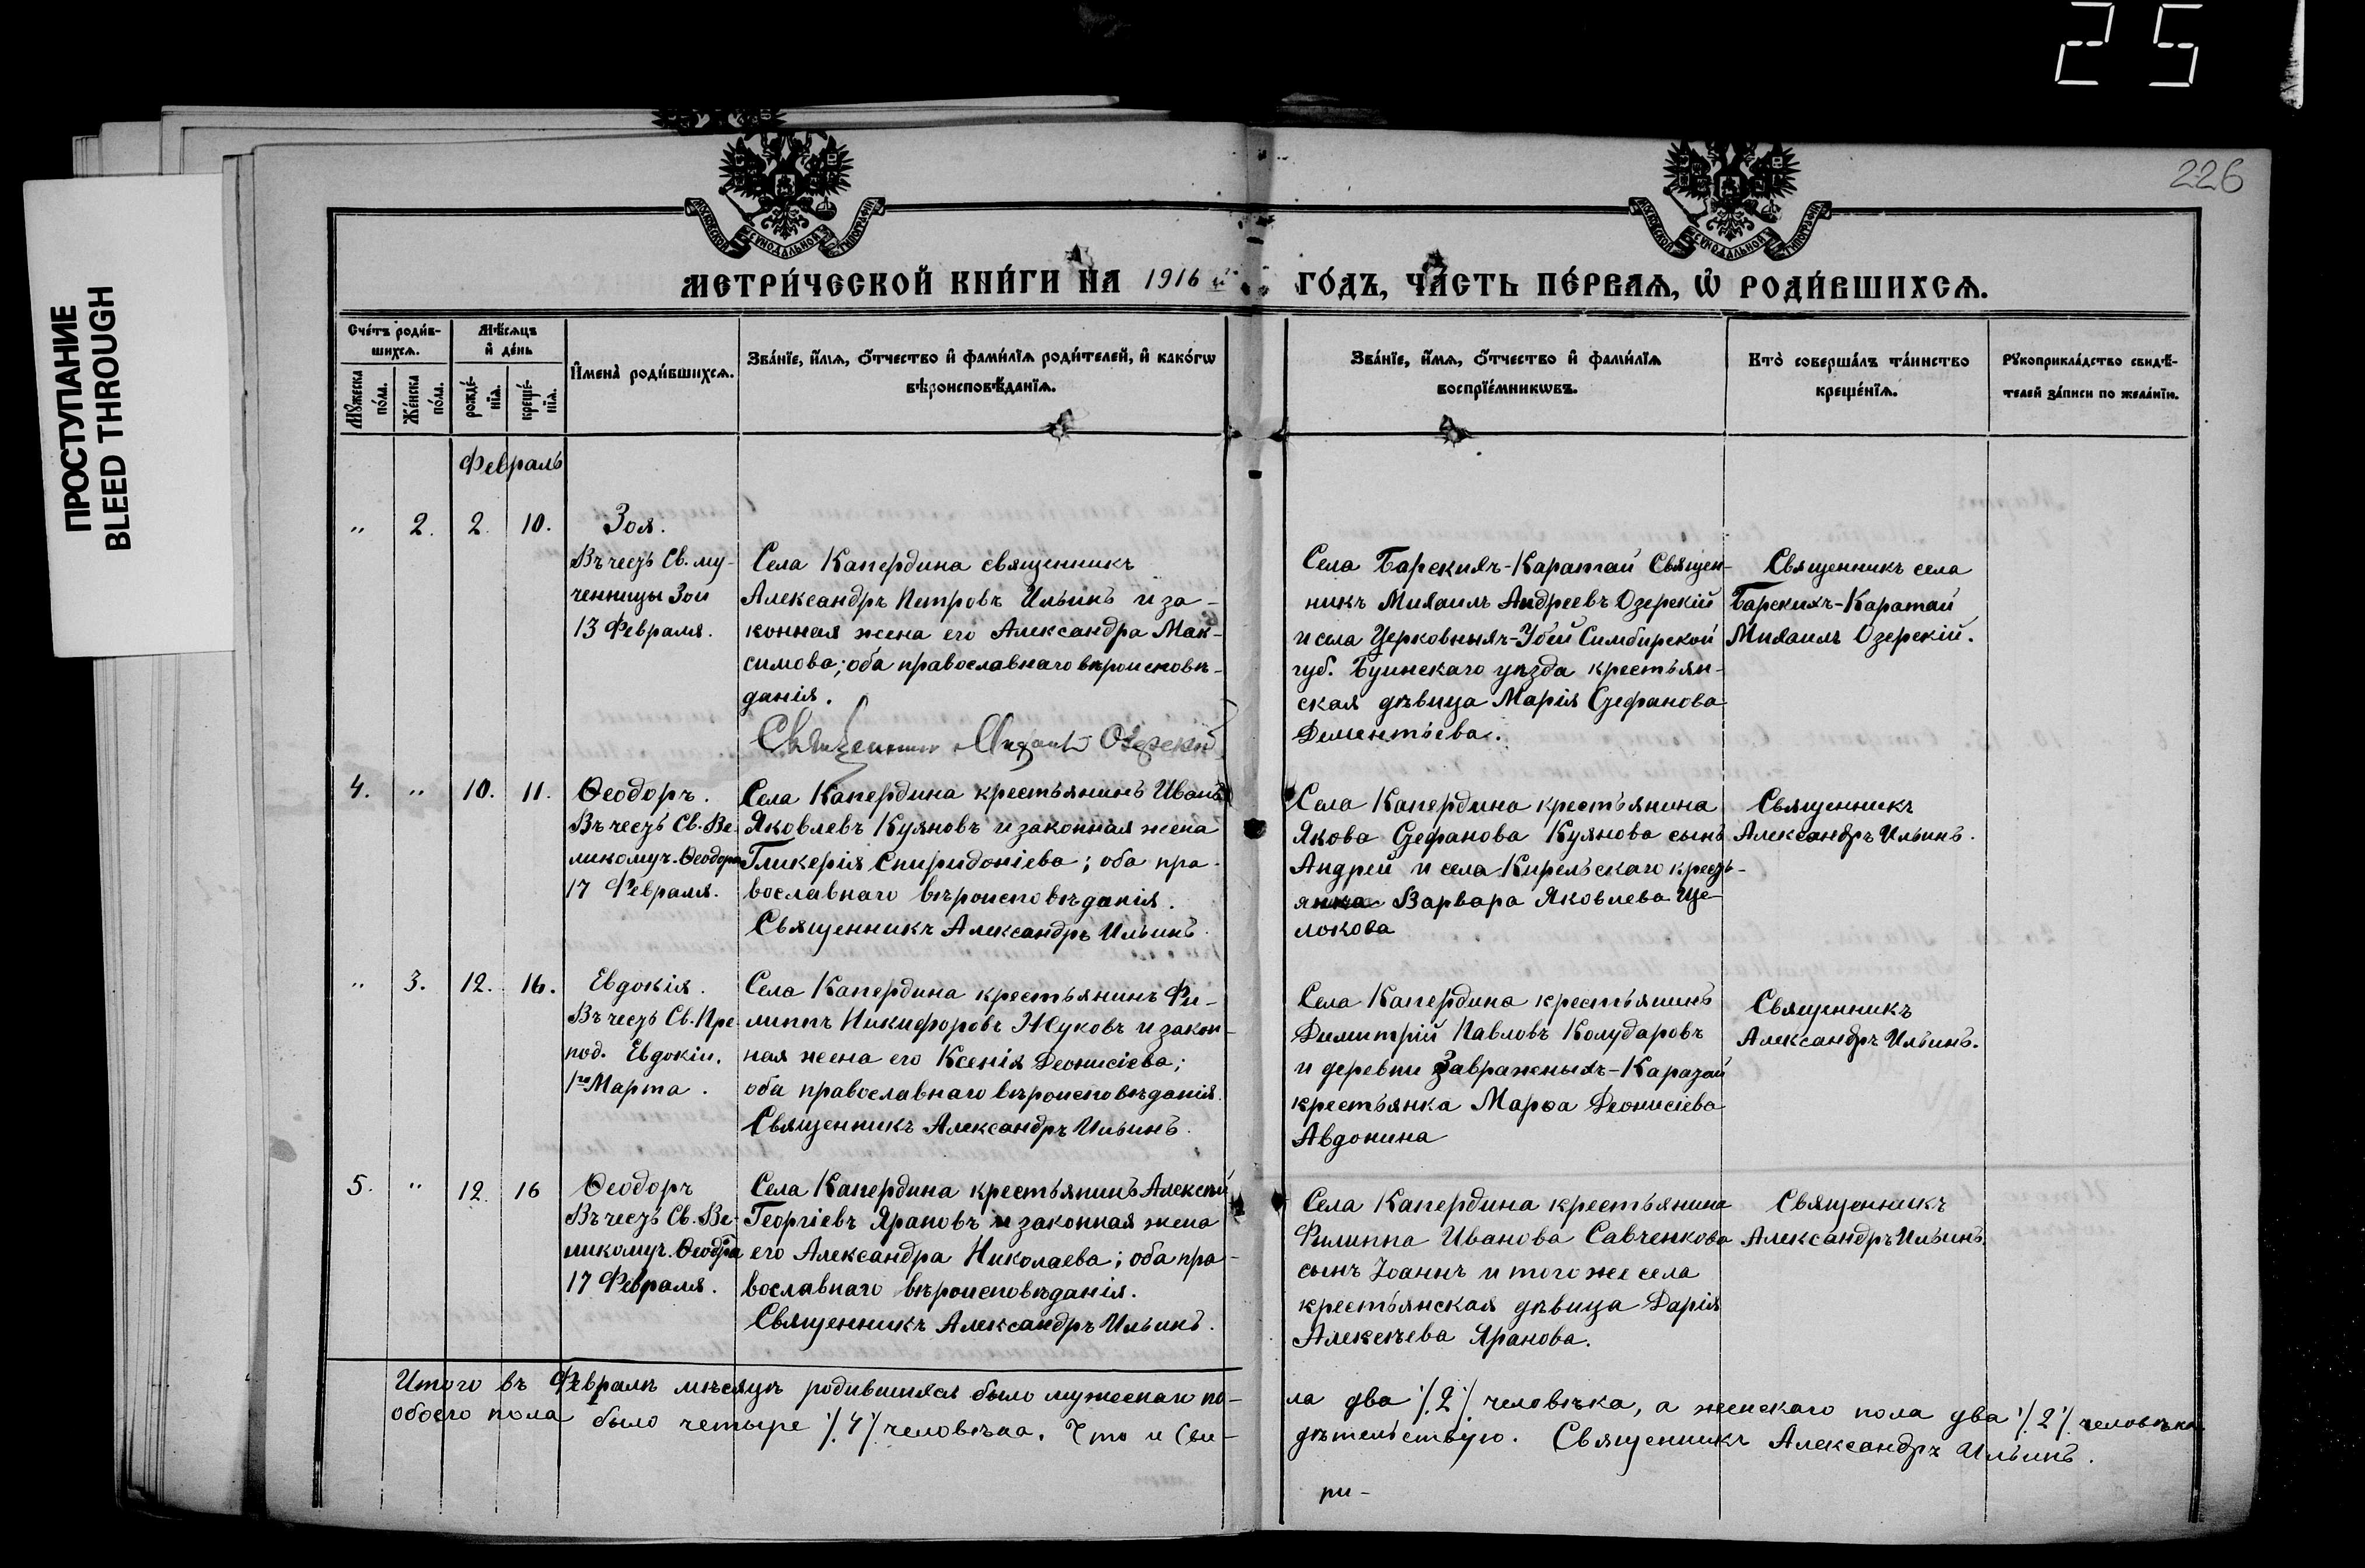 25
226
ПРОСТУПАНИЕ
BLEED THROUGH
МОСКОВСКОЙ СѴНОДАЛЬНОЙ ТИПОГРАФІИ
МОСКОВСКОЙ СѴНОДАЛЬНОЙ ТИПОГРАФІИ
МЕТРИ́ЧЕСКОЙ КНИ́ГИ НА 1916 й ГО́ДЪ, ЧА́СТЬ ПЕ́РВАѦ, Ѡ҆ РОДИ́ВШИХСѦ.
Сче́тъ роди́в-
шихсѧ.
Мꙋ́жеска
по́ла.
Же́нска
по́ла.
Мѣ́сѧцъ
и҆ де́нь
рожде́-
нїѧ.
креще́-
нїѧ.
И҆мена̀ роди́вшихсѧ.
Зва́нїе, и҆́мѧ, ѻ҆́тчество и҆ фами́лїѧ роди́телей, и҆ како́гѡ
вѣроисповѣ́данїѧ.
Зва́нїе, и҆́мѧ, ѻ҆́тчество и҆ фами́лїѧ
воспрїе́мникѡвъ.
Кто̀ соверша́лъ та́инство
креще́нїѧ.
Рꙋкоприкла́дство свидѣ́-
телей за́писи по жела́нїю.
Февраль
" 2. 2. 10. Зоя.
Въ честь Св. му-
ченницы Зои
13 Февраля.
Села Капердина священникъ
Александръ Петровъ Ильинъ и за-
конная жена его Александра Мак-
симова; оба православнаго вѣроисповѣ-
данія.
Священник Михаилъ Озерскій
Села Барскихъ-Каратай Священ-
никъ Михаилъ Андреевъ Озерскій
и села Церковныхъ-Убей Симбирской
губ. Буинскаго уѣзда крестьян-
ская дѣвица Марія Стефанова
Дементьева.
Священникъ села
Барскихъ-Каратай
Михаилъ Озерскій.
4. " 10. 11. Ѳеодоръ.
Въ честь Св. Ве-
ликомуч. Ѳеодора
17 Февраля.
Села Капердина крестьянинъ Иванъ
Яковлевъ Куяновъ и законная жена
Гликерія Спиридоніева; оба пра-
вославнаго вѣроисповѣданія.
Священникъ Александръ Ильинъ.
Села Капердина крестьянина
Якова Стефанова Куянова сынъ
Андрей и села Кирельскаго кресть-
янка Варвара Яковлева Ще-
локова
Священникъ
Александръ Ильинъ.
" 3. 12. 16. Евдокія.
Въ честь Св. Пре-
под. Евдокіи.
1го Марта.
Села Капердина крестьянинъ Фи-
липпъ Никифоровъ Жуковъ и закон-
ная жена его Ксенія Деонисіева;
оба православнаго вѣроисповѣданія.
Священникъ Александръ Ильинъ.
Села Капердина крестьянинъ
Димитрій Павловъ Колударовъ
и деревни Завражныхъ-Каратай
крестьянка Марѳа Деонисіева
Авдонина
Священникъ
Александръ Ильинъ.
5. " 12. 16 Ѳеодоръ
Въ честь Св. Ве-
ликомуч. Ѳеодора
17 Февраля.
Села Капердина крестьянинъ Алексѣй
Георгіевъ Ярановъ и законная жена
его Александра Николаева; оба пра-
вославнаго вѣроисповѣданія.
Священникъ Александръ Ильинъ.
Села Капердина крестьянина
Филиппа Иванова Савченкова
сынъ Іоаннъ и того же села
крестьянская дѣвица Дарія
Алексѣева Яранова.
Священникъ
Александръ Ильинъ.
Итого въ Февралѣ мѣсяцѣ родившихся было мужескаго по-
ла два ./.2./. человѣка, а женскаго пола два ./.2./. человѣка
обоего пола было четыре ./.4./. человѣка. Что и сви-
дѣтельствую. Священникъ Александръ Ильинъ.
ри-